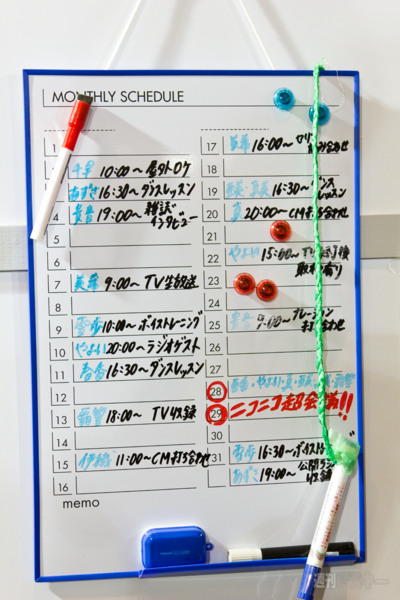 MONTHLY SCHEDULE
1
千早 10:00〜 屋外ロケ
あずさ 16:30〜ダンスレッスン
4 真音 19:00〜 雑誌インタビュー
5
6
7 美希 9:00〜 TV生放送
8
9 雪歩 10:00〜ボイストレーニング
10 やよい 20:00〜ラジオゲスト
11 春香 16:30〜ダンスレッスン
12
13 亜美 18:00〜 TV収録
14
15 伊織 11:00〜CM打ち合わせ
16
17 16:00〜
18
19 16:30〜 ダンスレッスン
20 真 20:00〜CM打ち合わせ
21
22 やよい 15:00〜
23
24
25 9:00〜 打ち合わせ
26
27
28
29 ニコニコ超会議!!
30
31 雪歩 16:30〜
あずさ 19:00〜 公開ラジオ収録
memo